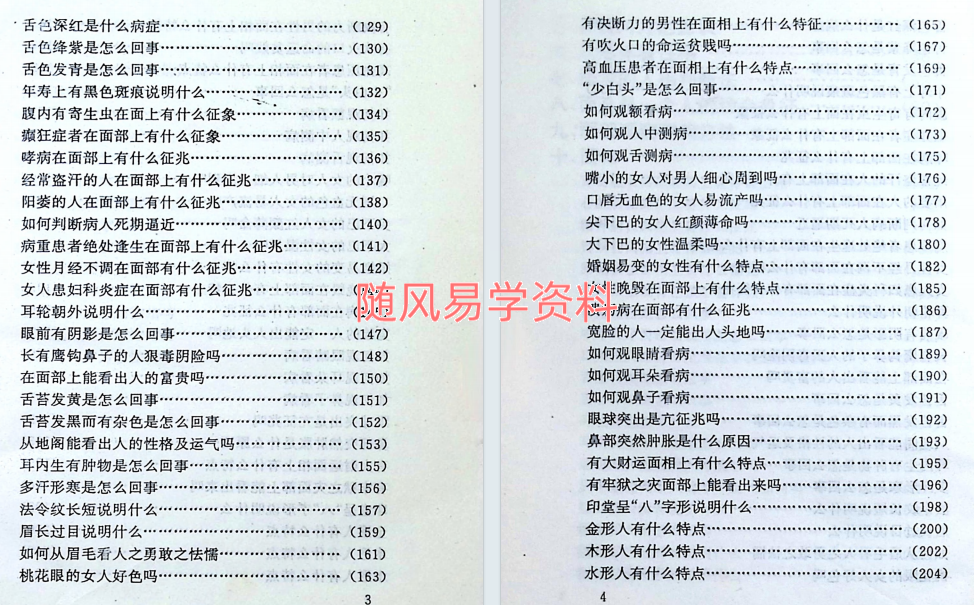 舌色深红是什么病症……………………(129)
舌色绛紫是怎么回事……………………(130)
舌色发青是怎么回事……………………(131)
年寿上有黑色斑痕说明什么……………………(132)
腹内有寄生虫在面上有什么征象……………………(134)
癫狂症者在面部上有什么征象……………………(135)
哮病在面部上有什么征兆……………………(136)
经常盗汗的人在面部上有什么征兆……………………(137)
阳萎的人在面部上有什么征兆……………………(138)
如何判断病人死期逼近……………………(140)
病重患者绝处逢生在面部上有什么征兆……………………(141)
女性月经不调在面部有什么征兆……………………(142)
女人患妇科炎症在面部有什么征兆……………………
耳轮朝外说明什么……………………
眼前有阴影是怎么回事……………………(147)
长有鹰钩鼻子的人狠毒阴险吗……………………(148)
在面部上能看出人的富贵吗……………………(150)
舌苔发黄是怎么回事……………………(151)
舌苔发黑而有杂色是怎么回事……………………(152)
从地阁能看出人的性格及运气吗……………………(153)
耳内生有肿物是怎么回事……………………(155)
多汗形寒是怎么回事……………………(156)
法令纹长短说明什么……………………(157)
眉长过目说明什么……………………(159)
如何从眉毛看人之勇敢之怯懦……………………(161)
桃花眼的女人好色吗……………………(163)
3
有决断力的男性在面相上有什么特征……………………(165)
有吹火口的命运贫贱吗……………………(167)
高血压患者在面相上有什么特点……………………(169)
“少白头”是怎么回事……………………(171)
如何观额看病……………………(172)
如何观人中测病……………………(173)
如何观舌测病……………………(175)
嘴小的女人对男人细心周到吗……………………(176)
口唇无血色的女人易流产吗……………………(177)
尖下巴的女人红颜薄命吗……………………(178)
大下巴的女性温柔吗……………………(180)
婚姻易变的女性有什么特点……………………(182)
晚毁在面部上有什么特点……………………(185)
病在面部有什么征兆……………………(186)
宽脸的人一定能出人头地吗……………………(187)
如何观眼睛看病……………………(189)
如何观耳朵看病……………………(190)
如何观鼻子看病……………………(191)
眼球突出是亢征兆吗……………………(192)
鼻部突然肿胀是什么原因……………………(193)
有大财运面相上有什么特点……………………(195)
有牢狱之灾面部上能看出来吗……………………(196)
印堂呈“八”字形说明什么……………………(198)
金形人有什么特点……………………(200)
木形人有什么特点……………………(202)
水形人有什么特点……………………(204)
4
随风易学资料